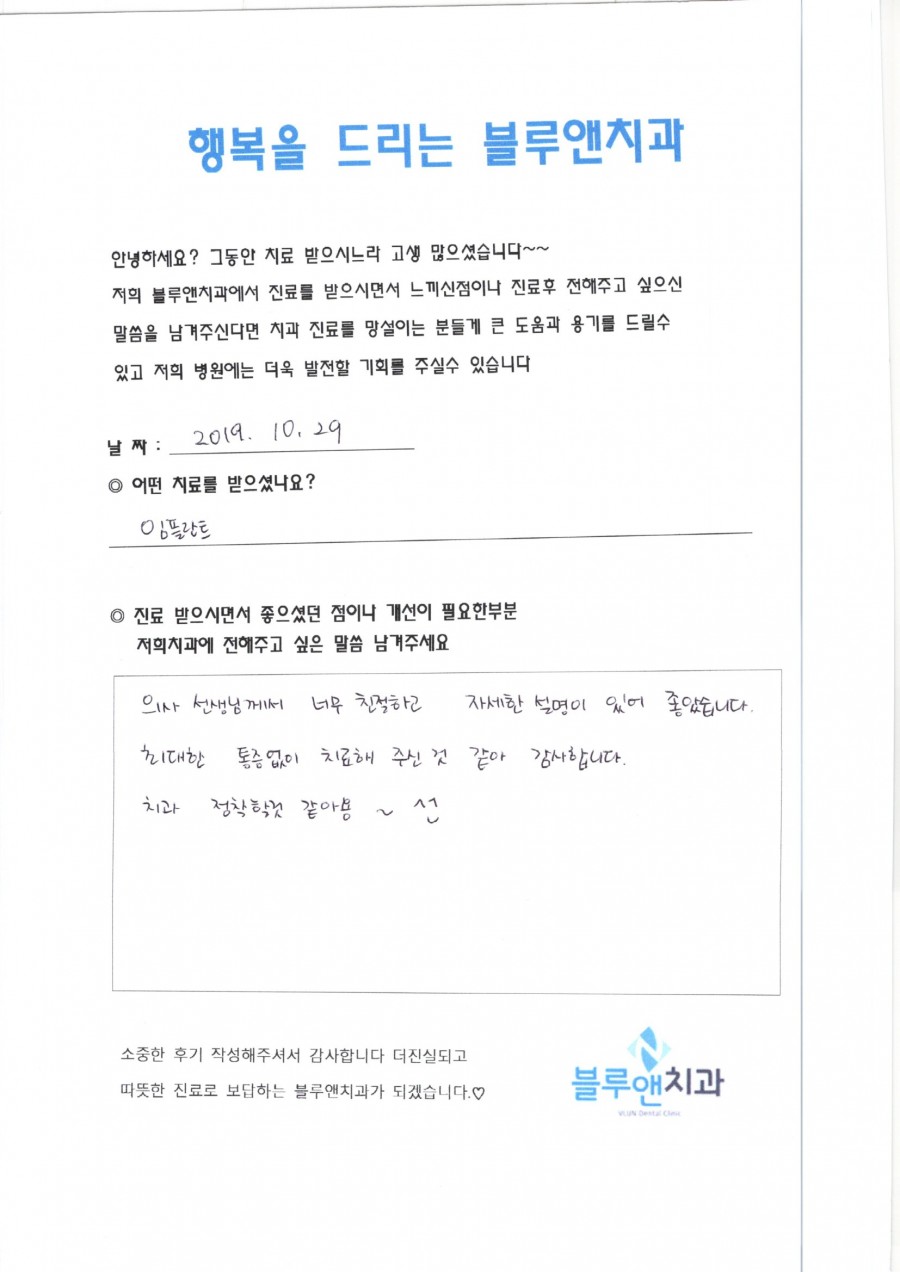 행복을 드리는 블루앤치과
안녕하세요? 그동안 치료 받으시느라 고생 많으셨습니다~~
저희 블루앤치과에서 진료를 받으시면서 느끼신점이나 진료후 전해주고 싶으신
말씀을 남겨주신다면 치과 진료를 망설이는 분들게 큰 도움과 용기를 드릴수
있고 저희 병원에는 더욱 발전할 기회를 주실수 있습니다
날 짜 : 2019. 10. 29
◎ 어떤 치료를 받으셨나요?
임플란트
◎ 진료 받으시면서 좋으셨던 점이나 개선이 필요한부분
저희치과에 전해주고 싶은 말씀 남겨주세요
의사 선생님께서 너무 친절하고 자세한 설명이 있어 좋았습니다.
최대한 통증없이 치료해 주신 것 같아 감사합니다.
치과 같아용 ~
소중한 후기 작성해주셔서 감사합니다 더진실되고
따뜻한 진료로 보답하는 블루앤치과가 되겠습니다.♡
블루앤치과
VLUN Dental Clinic